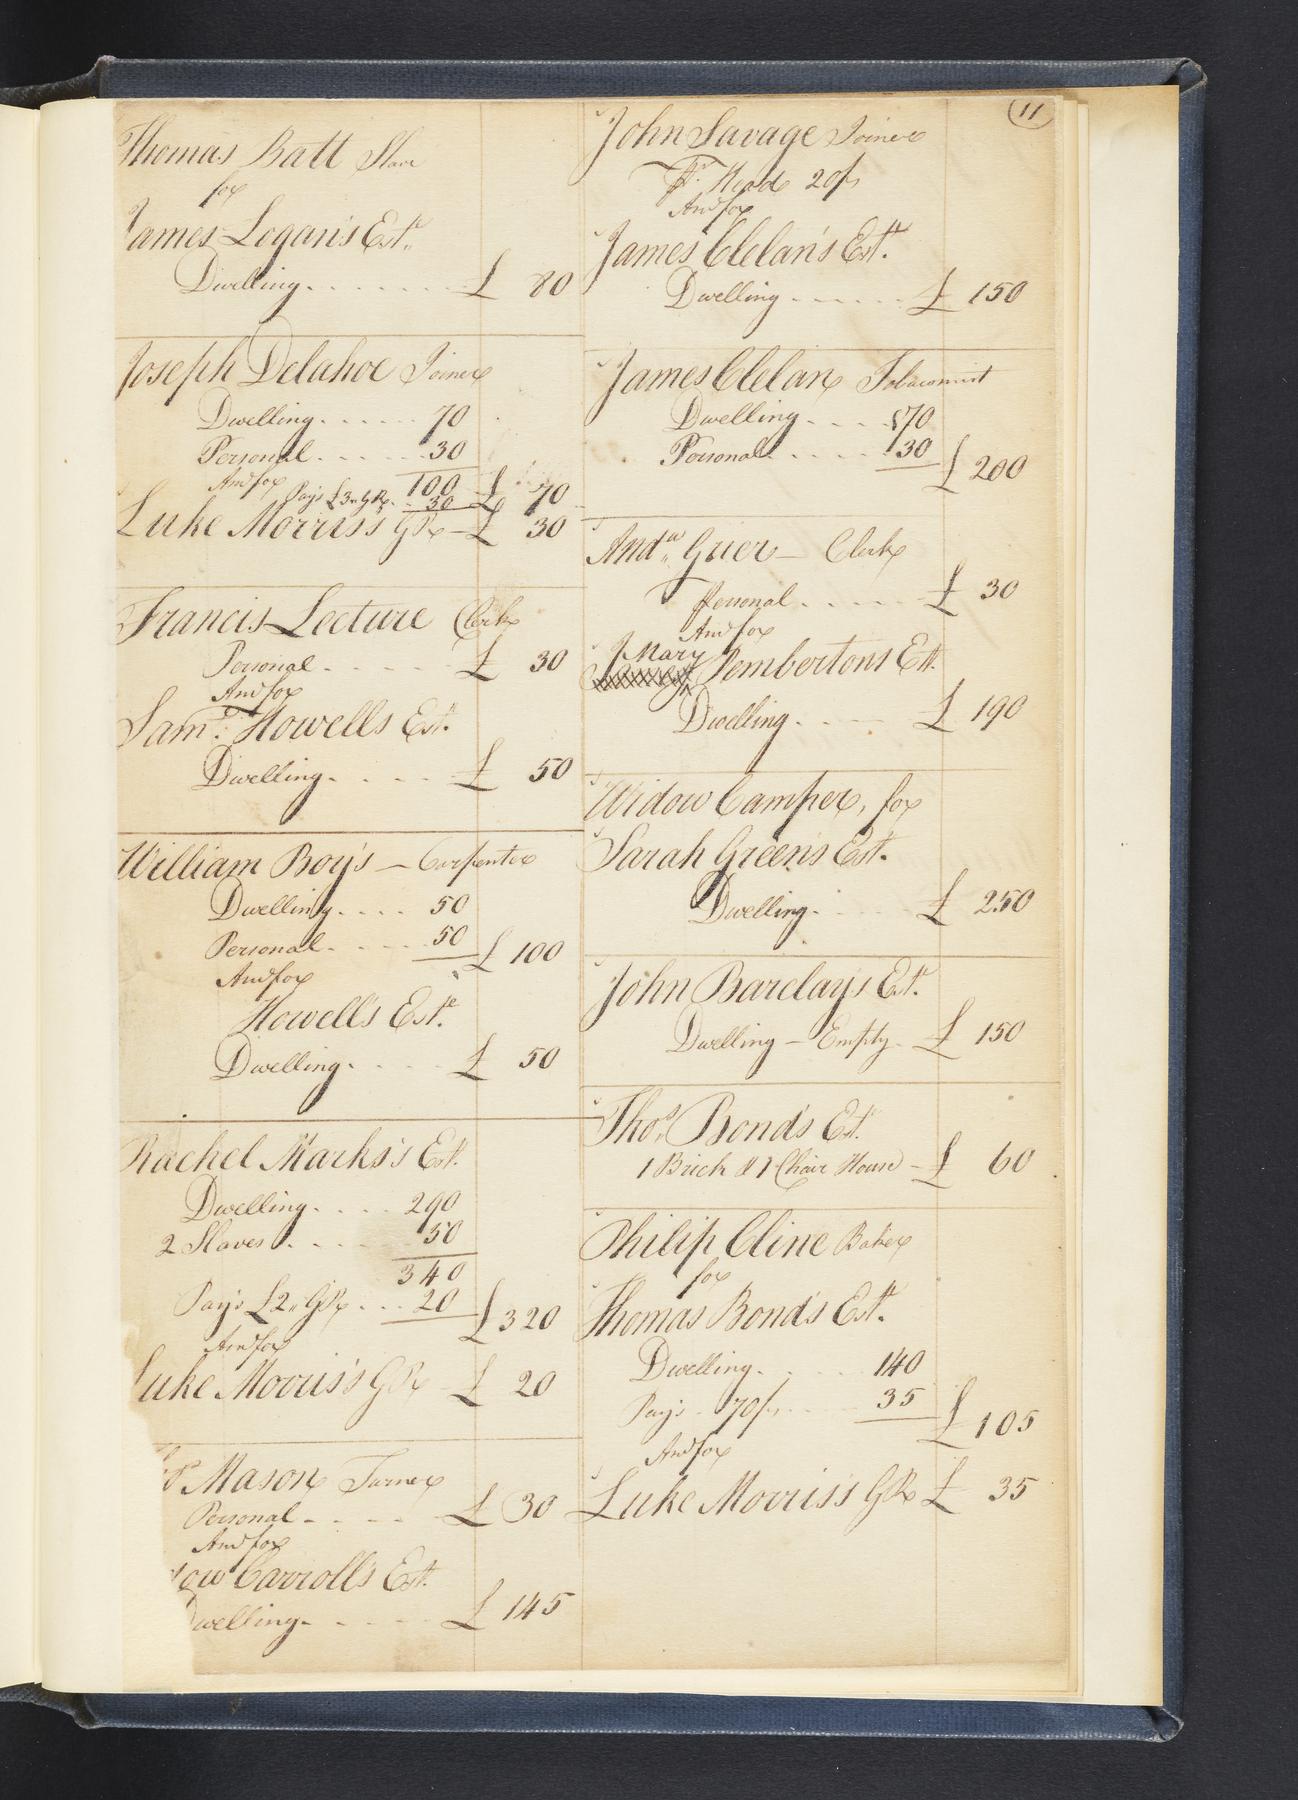 Thomas Batt Slave
for
James Logan's Estt.
Dwelling £ 80
Joseph Delahoe Joiner
Dwelling 70
Personal 30
100
And for Pays £3 " GR 30 £ 70
Luke Morris's GR £ 30
Francis Lecture Clerk
Personal £ 30
And for
Saml. Howells Est.
Dwelling £ 50
William Boy's — Carpenter
Dwelling 50
Personal 50 £ 100
And for
Howell's Este.
Dwelling £ 50
Rachel Marks's Est.
Dwelling 290
2 Slaves 50
340
Pay's £2 " GR 20 £ 320
And for
Luke Morris's GR £ 20
Mason Turner
Personal £ 30
And for
ow Carroll's Est.
Dwelling £ 145
11
John Savage Joiner
Pr. Head 20/
And for
James Clelan's Estt.
Dwelling £ 150
James Clelan Tobaconist
Dwelling 170
Personal 30 £ 200
Andw. Grier — Clerk
Personal £ 30
And for
Mary
Pembertons Estt.
Dwelling £ 190
Widow Camper, for
Sarah Green's Est.
Dwelling £ 250
John Barclay's Est.
Dwelling — Empty £ 150
Thos. Bond's Est.
1 Brick & 1 Chair House £ 60
Philip Cline Baker
for
Thomas Bond's Estt.
Dwelling 140
Pay's 70/ 35 £ 105
And for
Luke Morris's GR £ 35